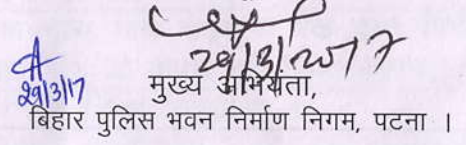 29/3/2017
29/3/17
मुख्य अभियंता,
बिहार पुलिस भवन निर्माण निगम, पटना ।